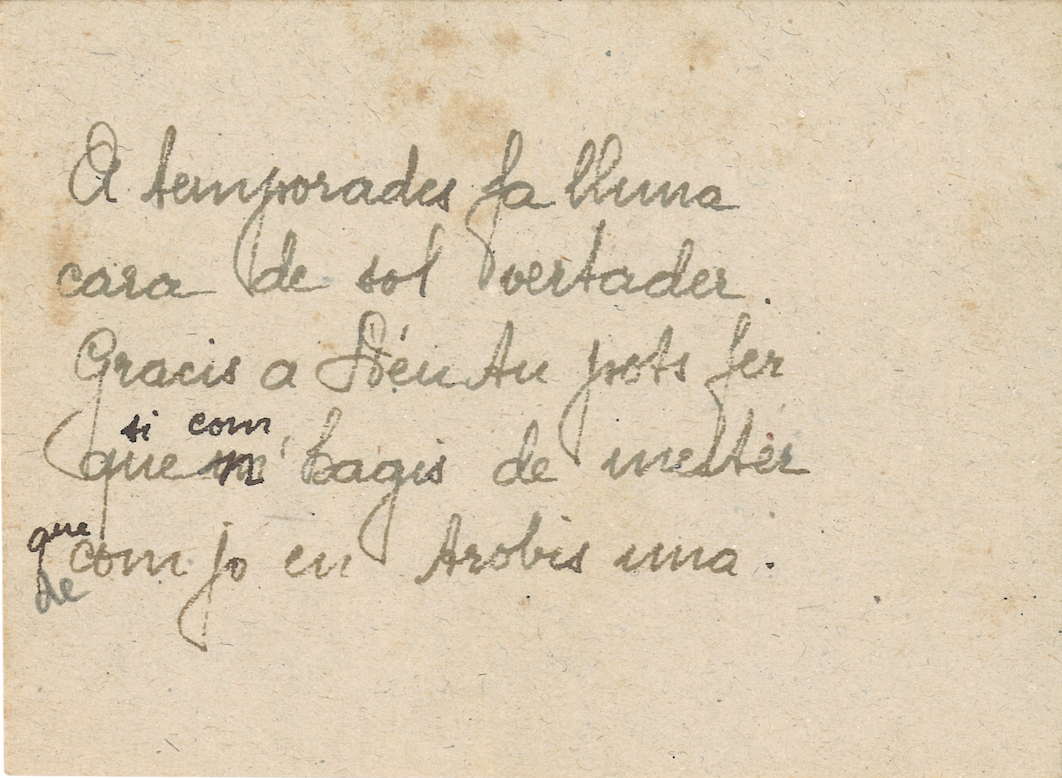 A temporades fa lluna
cara de sol vertader.
Gracis a Déu tu pots fer
si com
que m' hagis de mester
que
com jo en trobis una.
de